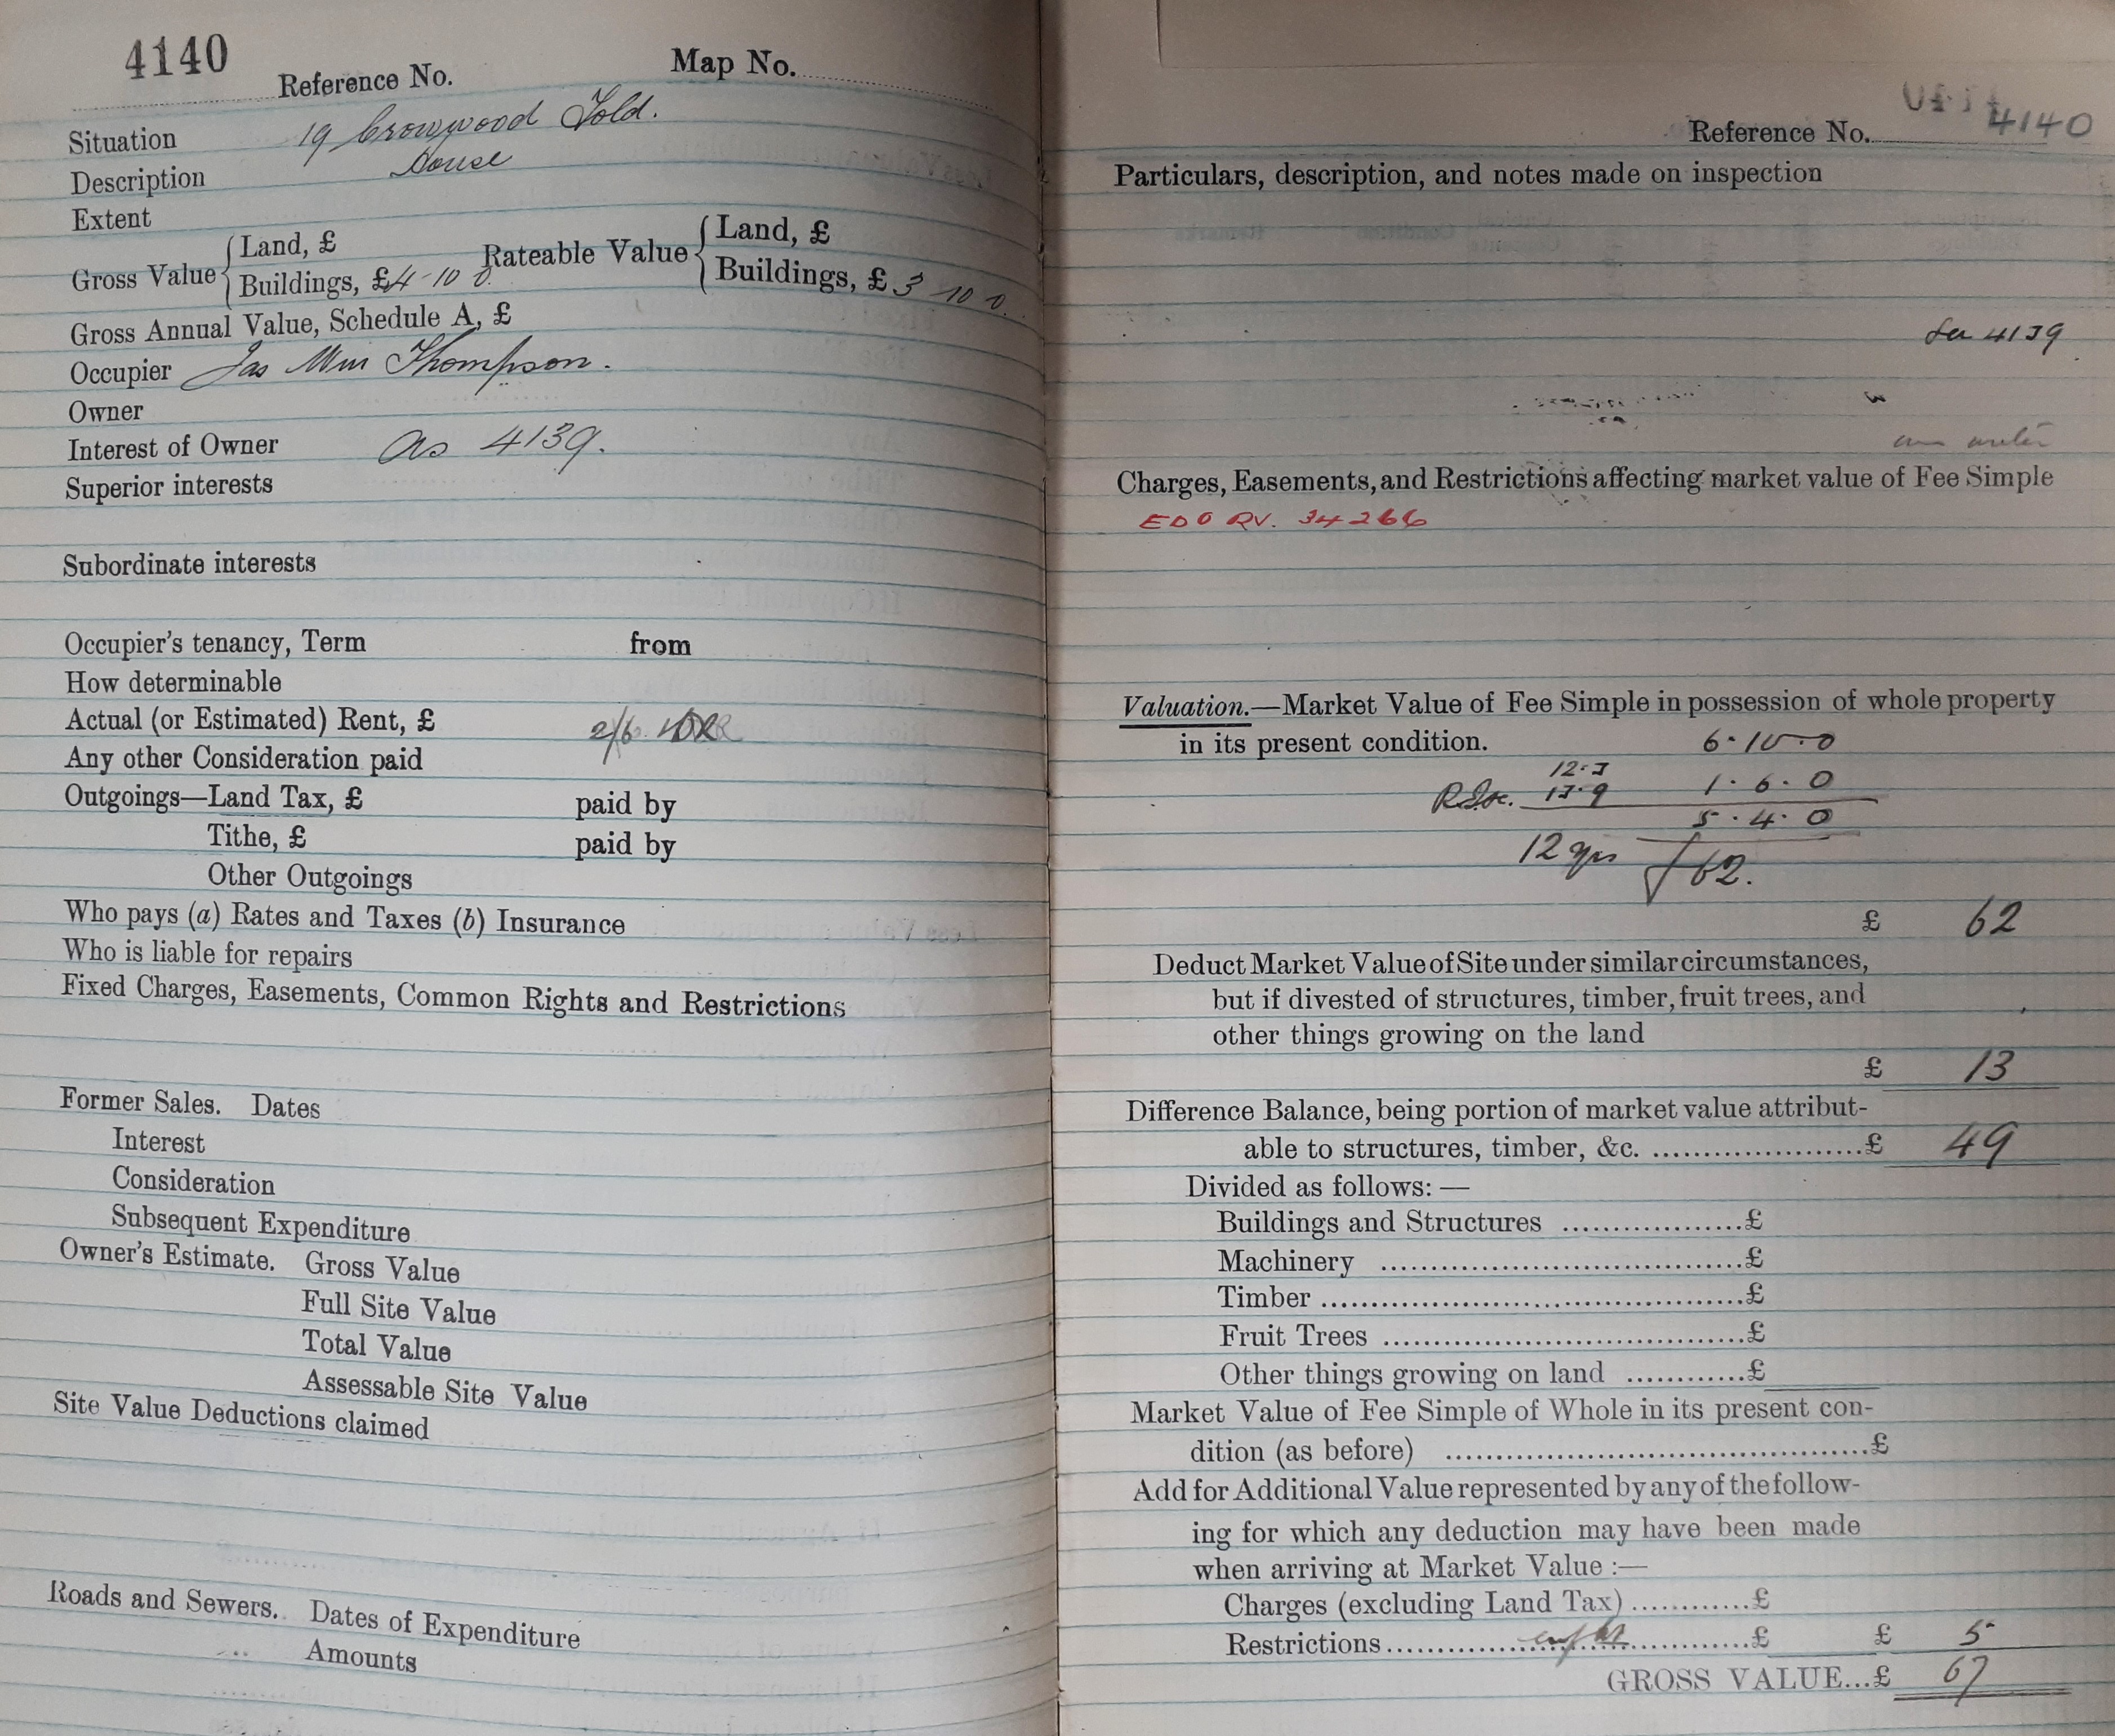 4140
Reference No. Map No.
Situation 19 Crowwood Fold.
Description House
Extent
Gross Value { Land, £ Rateable Value { Land, £
Buildings, £ 4 - 10 0. Buildings, £ 3 10 0.
Gross Annual Value, Schedule A, £
Occupier Jas Wm Thompson.
Owner
Interest of Owner as 4139.
Superior interests
Subordinate interests
Occupier's tenancy, Term from
How determinable
Actual (or Estimated) Rent, £ 2/6.
Any other Consideration paid
Outgoings—Land Tax, £ paid by
Tithe, £ paid by
Other Outgoings
Who pays (a) Rates and Taxes (b) Insurance
Who is liable for repairs
Fixed Charges, Easements, Common Rights and Restrictions
Former Sales. Dates
Interest
Consideration
Subsequent Expenditure
Owner's Estimate. Gross Value
Full Site Value
Total Value
Assessable Site Value
Site Value Deductions claimed
Roads and Sewers. Dates of Expenditure
Amounts
Reference No. 4140
Particulars, description, and notes made on inspection
See 4139
Charges, Easements, and Restrictions affecting market value of Fee Simple
EDO RV. 34266
Valuation.—Market Value of Fee Simple in possession of whole property
in its present condition. 6·10·0
12·3
13·9 1·6·0
5·4·0
12 yrs 62.
£ 62
Deduct Market Value of Site under similar circumstances,
but if divested of structures, timber, fruit trees, and
other things growing on the land
£ 13
Difference Balance, being portion of market value attribut-
able to structures, timber, &c. ..................... £ 49
Divided as follows: —
Buildings and Structures ..................£
Machinery ....................................£
Timber ..........................................£
Fruit Trees ....................................£
Other things growing on land ............£
Market Value of Fee Simple of Whole in its present con-
dition (as before) ..........................................£
Add for Additional Value represented by any of the follow-
ing for which any deduction may have been made
when arriving at Market Value :—
Charges (excluding Land Tax) ............£
Restrictions....................................£ £ 5
GROSS VALUE...£ 67